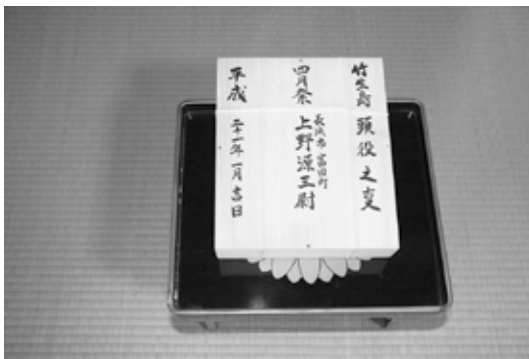 竹生島 頭役之叓
四月祭
長浜市 富田町
上野源王尉
平成 二十一年一月吉日